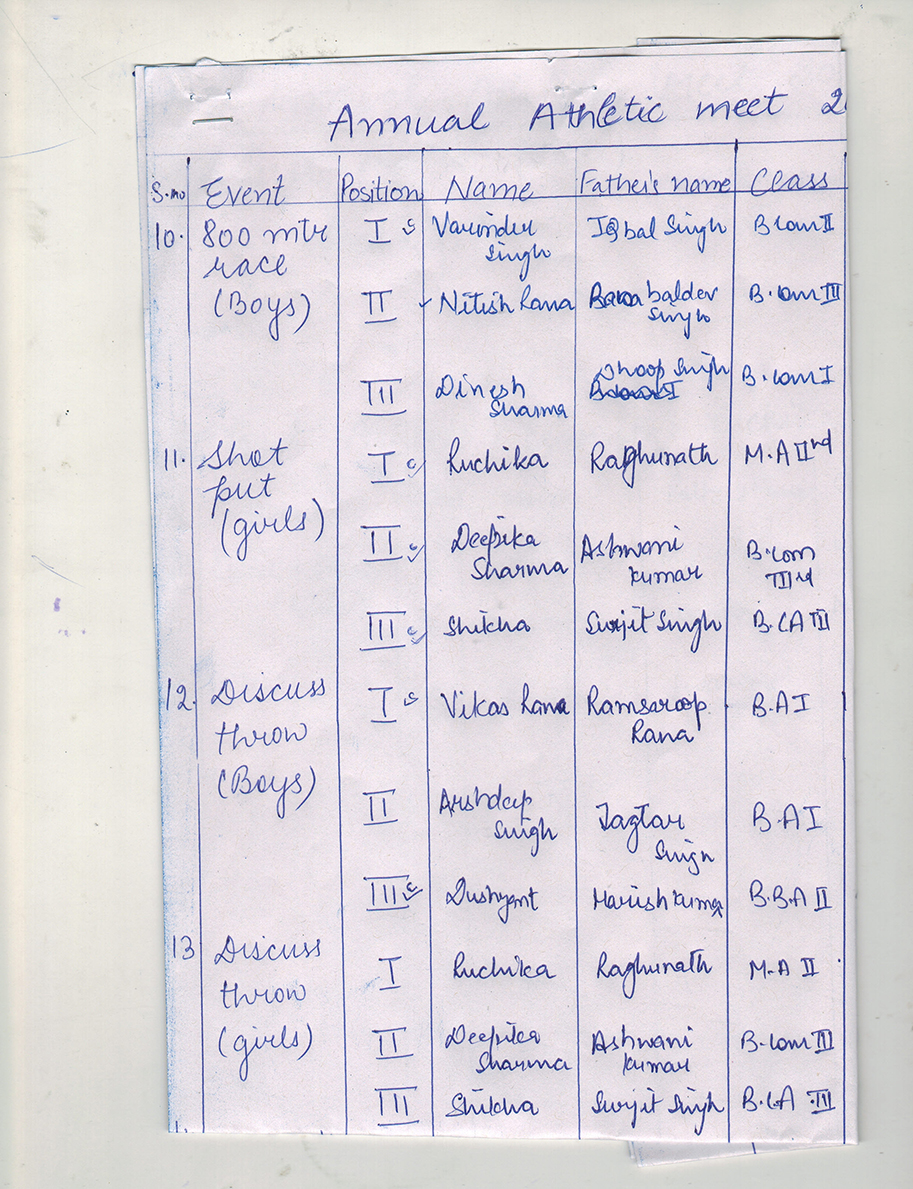 Annual Athletic meet 2
S.no Event Position Name Father's name Class
10. 800 mtr I Varinder Iqbal Singh B com II
race Singh
(Boys) II Nitish Rana balder B. com III
Singh
III Dinesh Dhoop Singh B. com I
Sharma
11. Shot I Ruchika Raghunath M.A IInd
put
(girls) II Deepika Ashwani B.com
Sharma Kumar IIIrd
III Shikha Surjit Singh B.CA III
12. Discuss I Vikas Rana Ramsaroop B.A I
throw Rana
(Boys) II Arshdeep Jagtar B.A I
Singh Singh
III Dushyant Harish Kumar B.B.A II
13 Discuss I Ruchika Raghunath M.A II
throw
(girls) II Deepika Ashwani B.com III
Sharma Kumar
III Shikha Surjit Singh B.C.A III